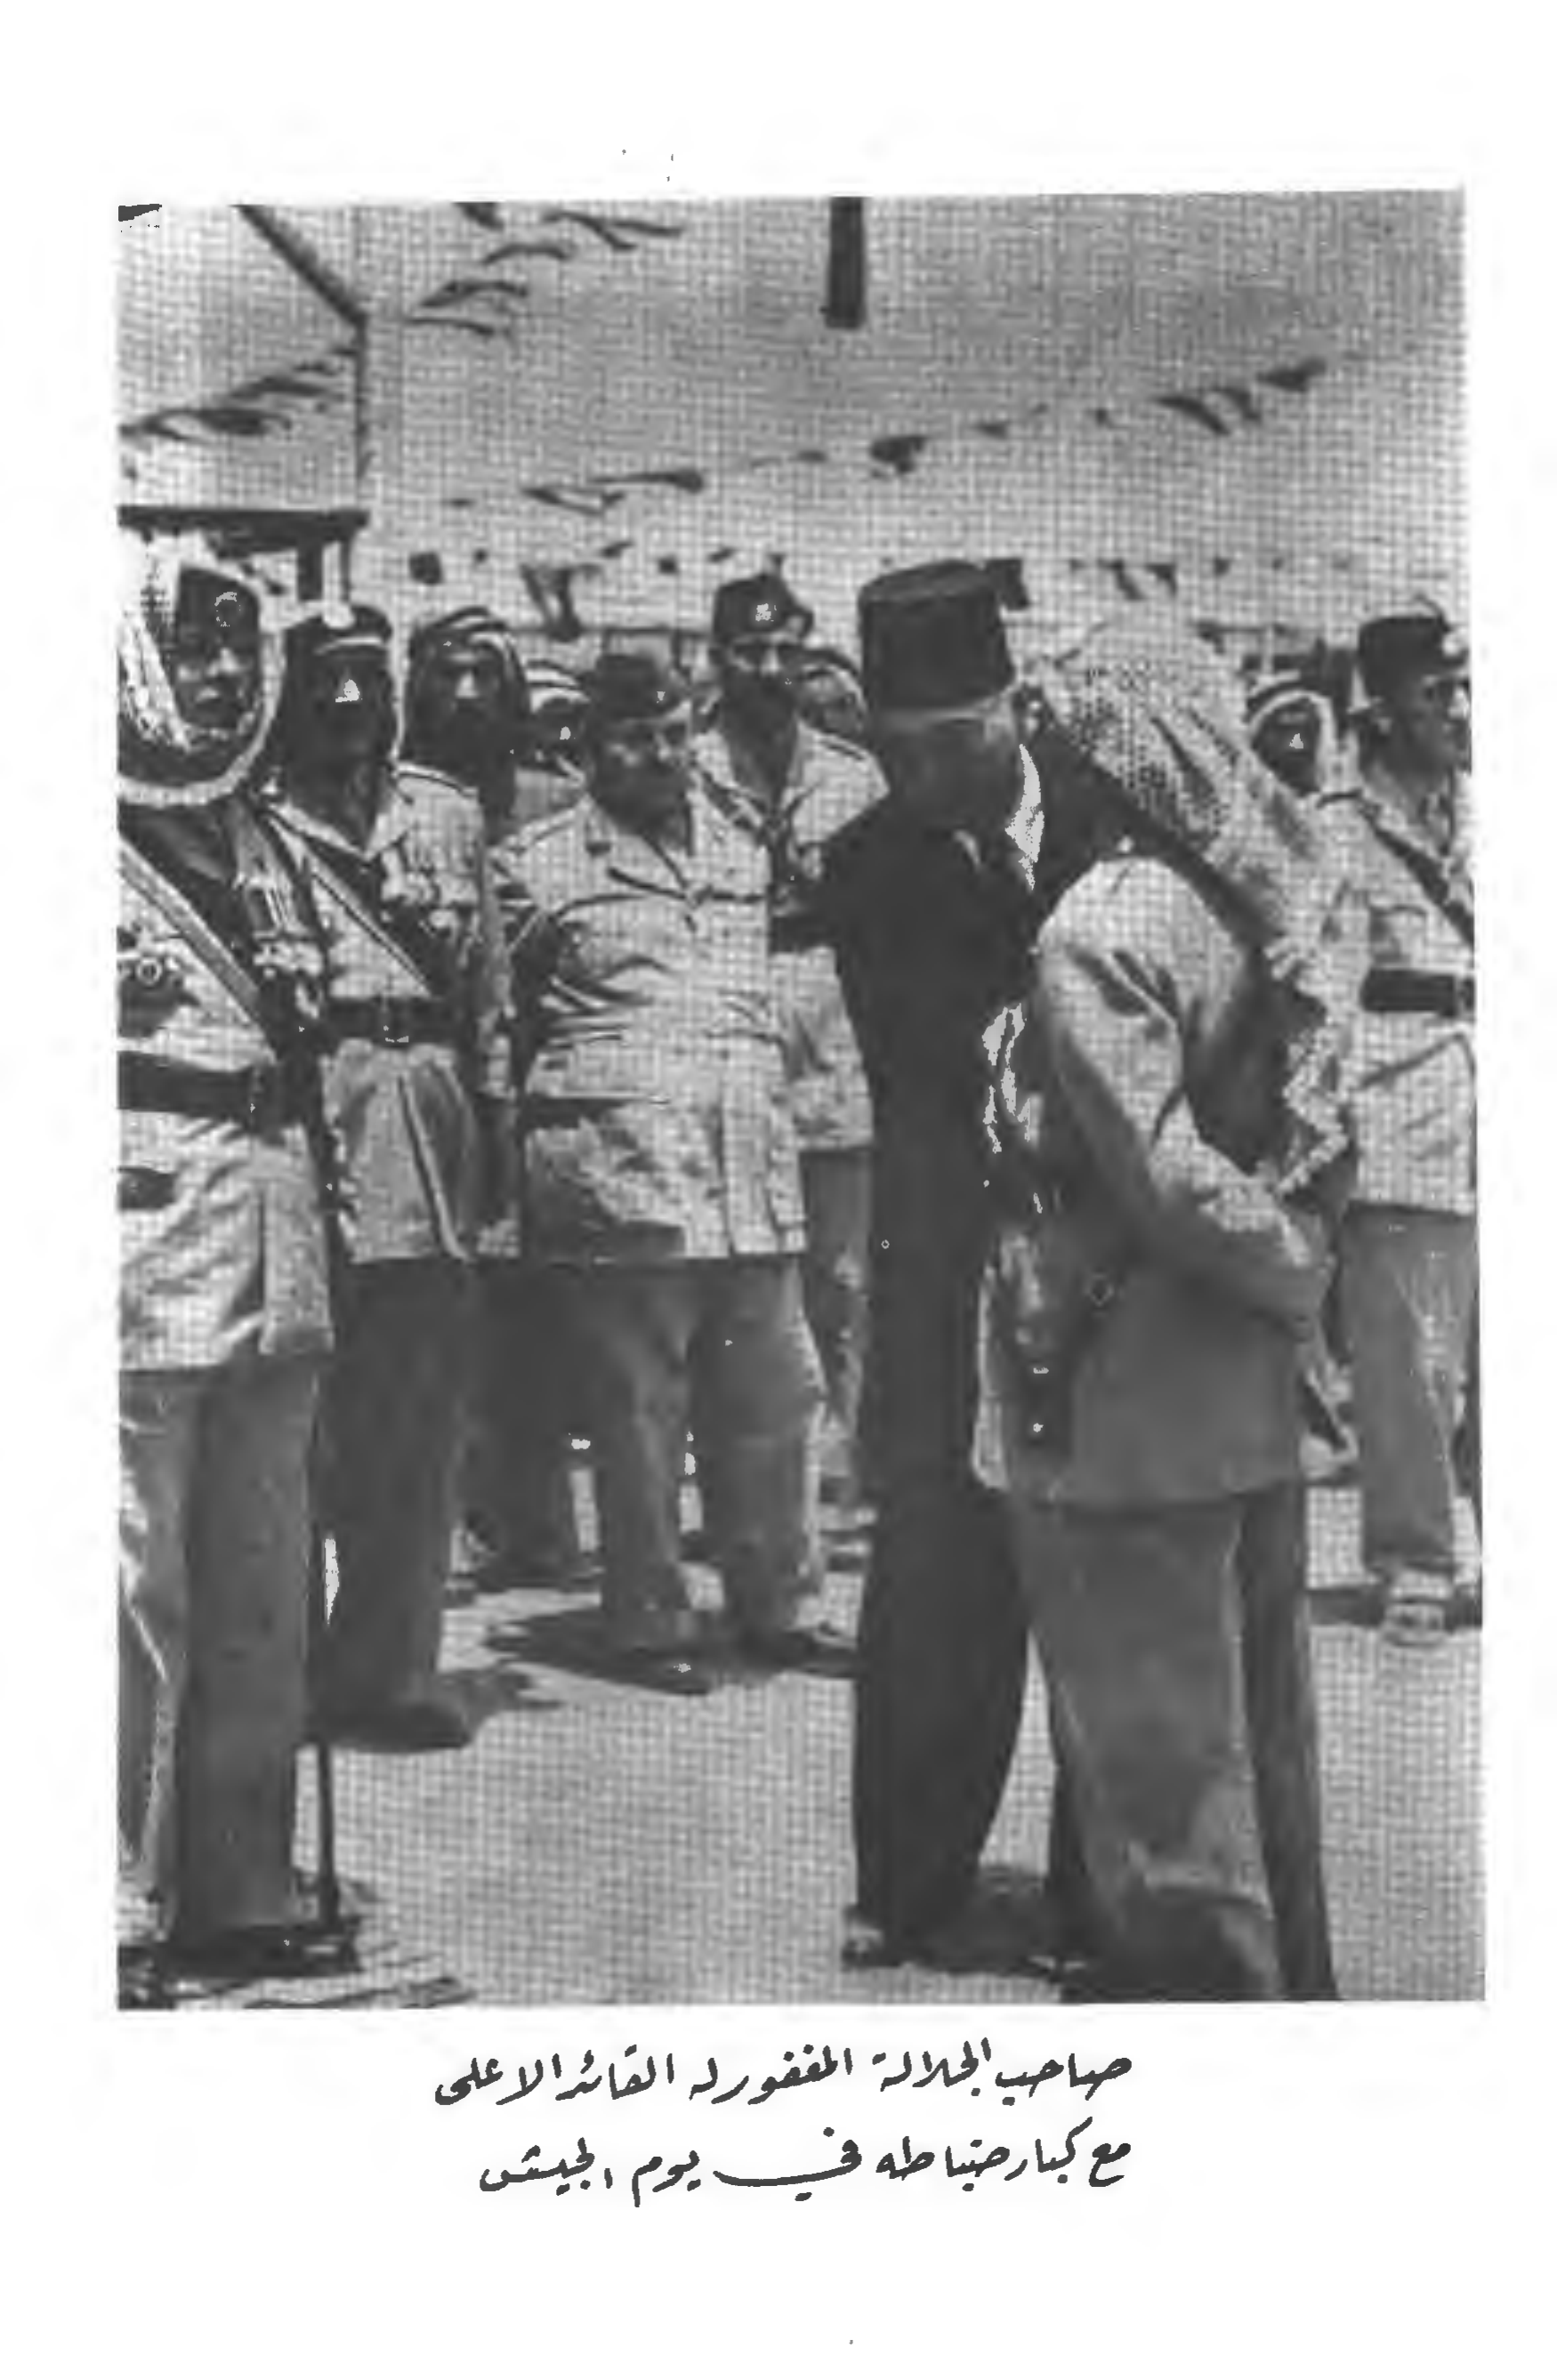 صاحب الجلالة المغفور له القائد الاعلى
مع كبار ضباطه في يوم الجيش